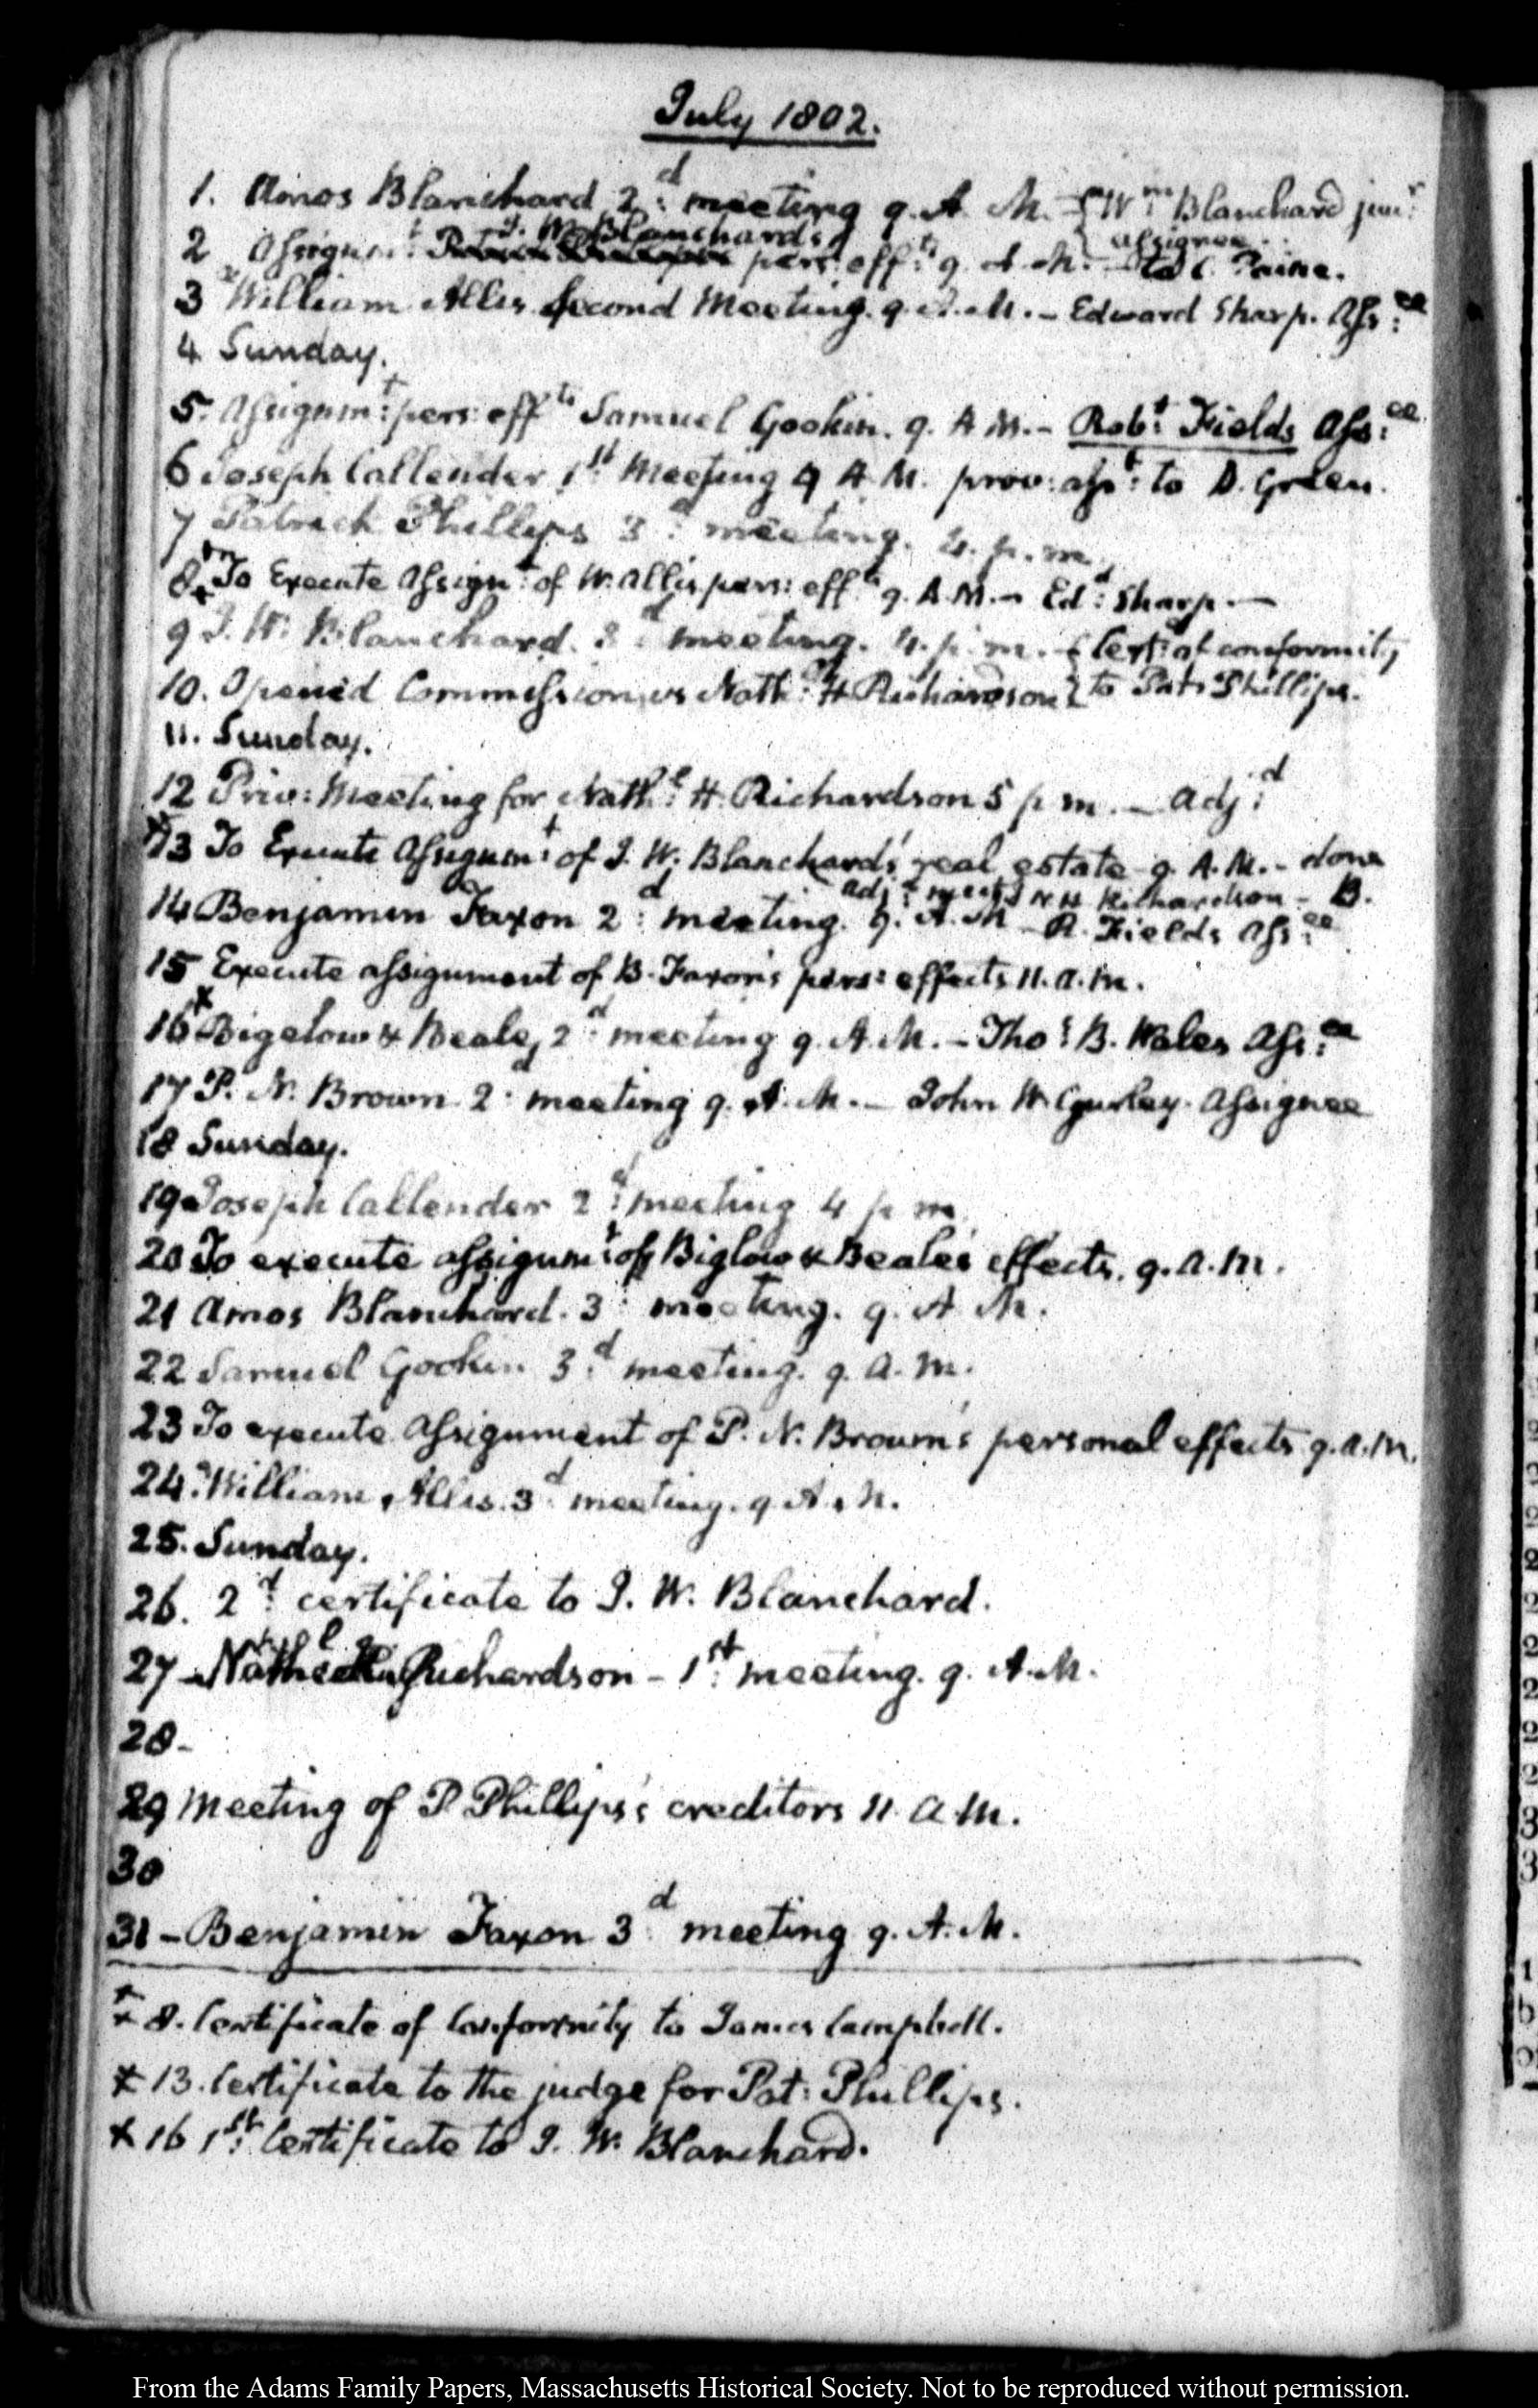 July 1802.
1. Amos Blanchard 2:d meeting 9. A. M. - { Wm: Blanchard junr:
2 Assignmt: J. W. Blanchards pers: effts: 9. A. M. - to C. Paine. assignee.
3 William Allis Second Meeting. 9. A. M. - Edward Sharp. Ass:ee
4 Sunday.
5. Assignm:t pers: effts Samuel Gookin. 9. A M. - Robt: Fields Ass:ee
6 Joseph Callender 1:st Meeting 9 A. M. prov: asst: to D. Green.
7 Patrick Phillips 3:d meeting. 4. p. m.
8. To Execute Assignt: of W. Allis pers: effts: 9. A. M. - Ed:d Sharp. -
9 J. W. Blanchard. 3:d meeting. 4. p. m. - { Cert: of conformity
10. Opened Commission vs Nath:l H Richardson } to Pat: Phillips.
11. Sunday.
12 Priv: Meeting for Nath:l H. Richardson 5 p m. - adj:d
*13 To Execute Assignm:t of J. W. Blanchards' real estate 9. A. M. - done
adj:d meetg N H Richardson - B.
14 Benjamin Faxon 2:d meeting. 9. A. M - R. Fields Ass:ee
15 Execute assignment of B. Faxon's pers: effects 11. a. m.
16* Bigelow & Beale, 2:d meeting 9. A. M. - Tho:s B. Wales Ass:ee
17 P. N. Brown. 2:d meeting 9. A. M. - John W. Gurley. Assignee
18 Sunday.
19 Joseph Callender 2:d meeting 4 p m
20 To execute assignm:t of Biglow & Beale's effects. 9. a. m.
21 Amos Blanchard. 3:d meeting. 9. A. M.
22 Samuel Gookin 3:d meeting. 9. a. m.
23 To execute Assignment of P. N. Brown's personal effects 9. a. m.
24. William Allis. 3:d meeting. 9 A. M.
25. Sunday.
26. 2:d certificate to J. W. Blanchard.
27 - Nath:l H. Richardson - 1:st meeting. 9. A. M.
28 -
29 Meeting of P Phillips's creditors 11. a. m.
30
31 - Benjamin Faxon 3:d meeting 9. A. M.
* 8. Certificate of Conformity to James Campbell.
* 13. Certificate to the judge for Pat: Phillips.
* 16 1:st Certificate to J. W. Blanchard.
From the Adams Family Papers, Massachusetts Historical Society. Not to be reproduced without permission.